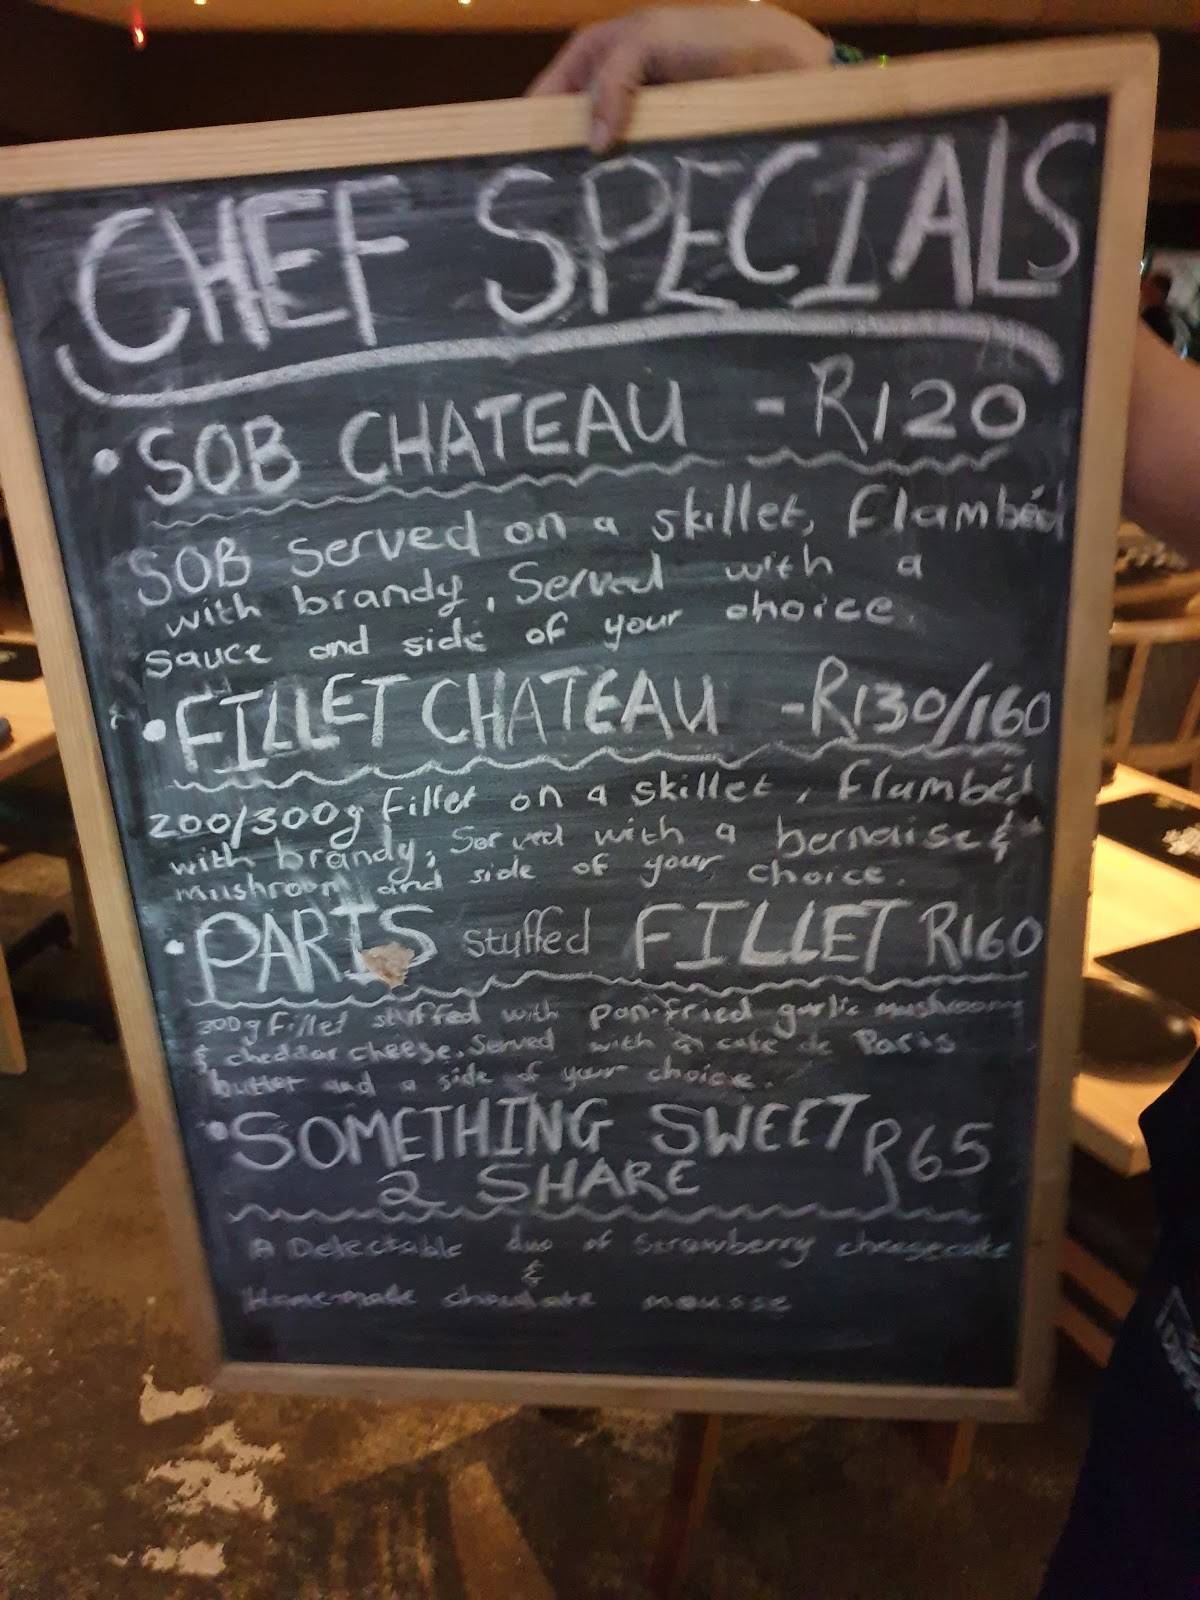 CHEF SPECIALS
• SOB CHATEAU - R120
SOB Served on a skillet, Flambéd
with brandy, Served with a
sauce and side of your choice.
• FILLET CHATEAU - R130/160
200/300g fillet on a skillet, flambéd
with brandy, Served with a bernaise &
mushroom and side of your choice.
• PARIS stuffed FILLET R160
300g fillet stuffed with pan-fried garlic mushrooms
& cheddar cheese. Served with a cafe de Paris
butter and a side of your choice.
• SOMETHING SWEET R65
2 SHARE
A Delectable duo of Strawberry cheesecake
&
Home-made chocolate mousse